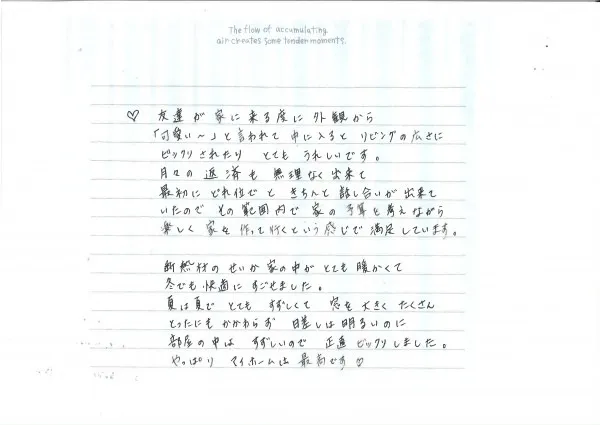 The flow of accumulating
air creates some tender moments.
♡ 友達が家に来る度に外観から
「可愛い〜」と言われて中に入ると リビングの広さに
ビックリされたり とてもうれしいです。
月々の返済も無理なく出来て
最初にどれ位でと きちんと話し合いが出来て
いたので その範囲内で家の予算を考えながら
楽しく家を作って行くという感じで満足しています。
断熱材のせいか家の中がとても暖かくて
冬でも快適にすごせました。
夏は夏で とても すずしくて 窓を大きく たくさん
とったにもかかわらず 日差しは明るいのに
部屋の中は すずしいので 正直ビックリしました。
やっぱり マイホームは最高です♡